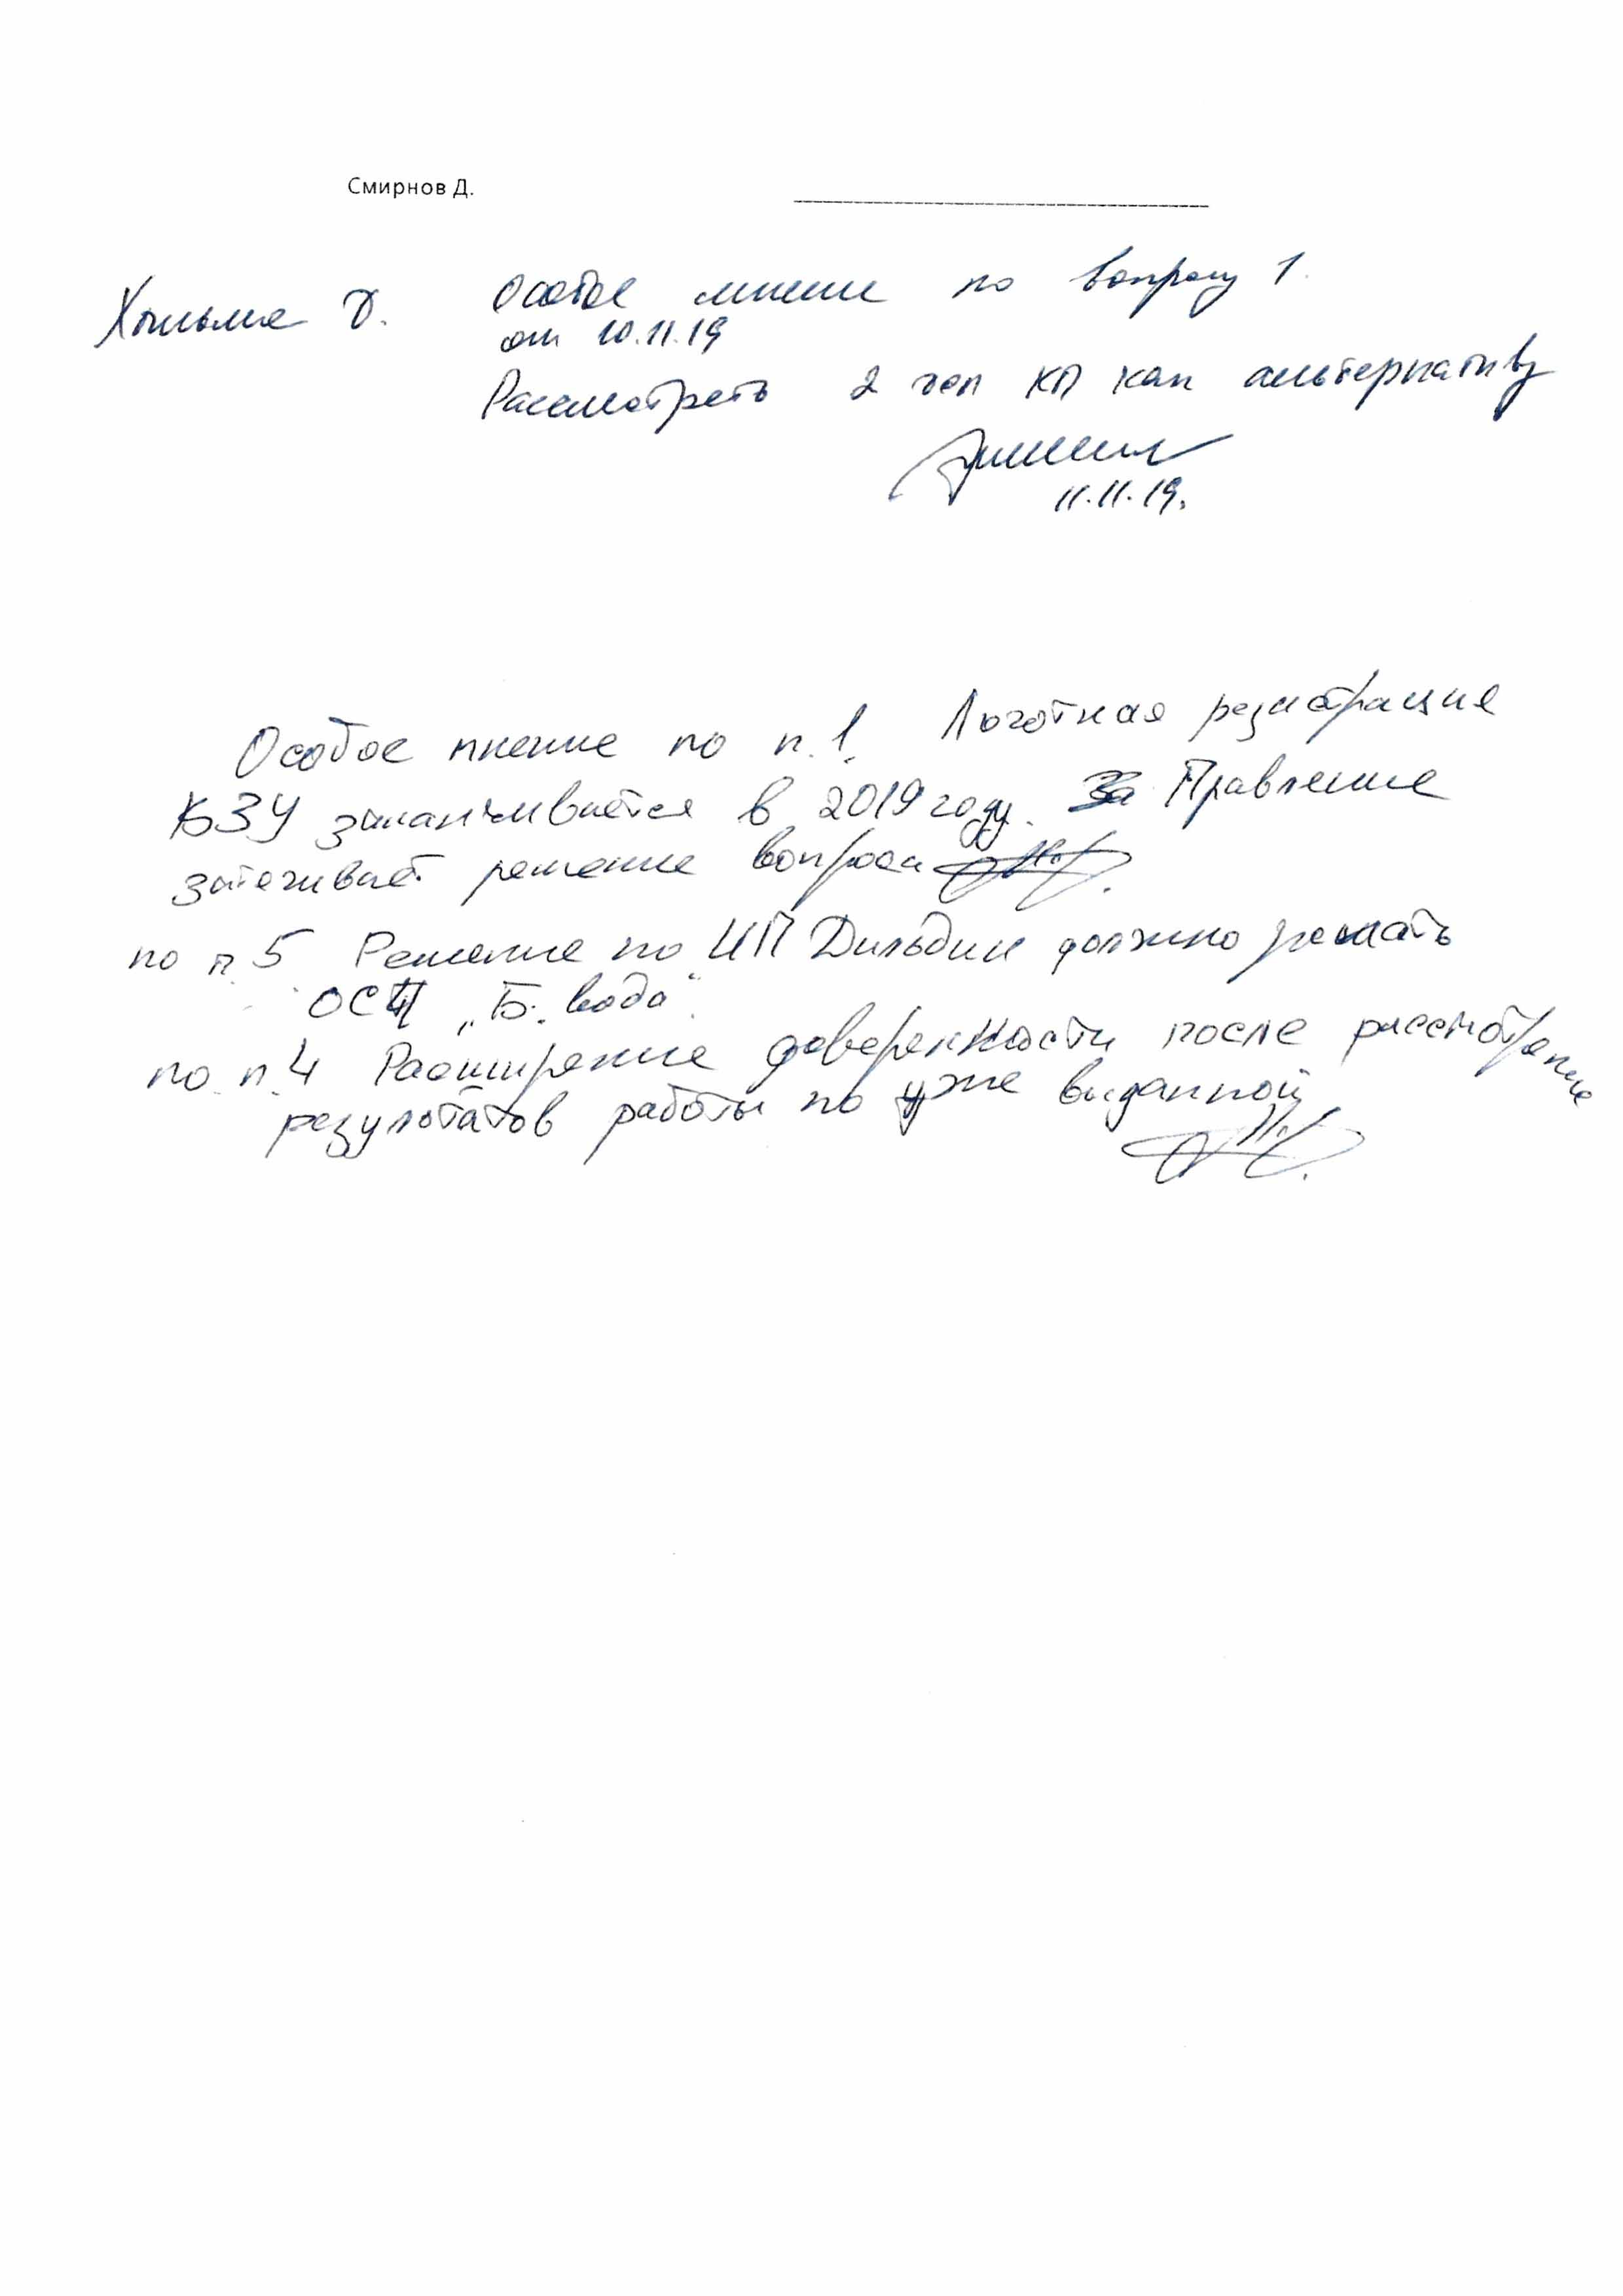 Смирнов Д.
Д. Особое мнение по вопросу 1.
от 10.11.19
Рассмотреть 2 КП как альтернативу
11.11.19.
Особое мнение по п.1. Льготная регистрация
КБЗУ заканчивается в 2019 году. Правление
затягивает решение вопроса
по п.5 Решение по ИП Дильдин должно решать
"Б. вода"
по п.4 Расширение доверенности после рассмотрение
результатов работы по уже выданной